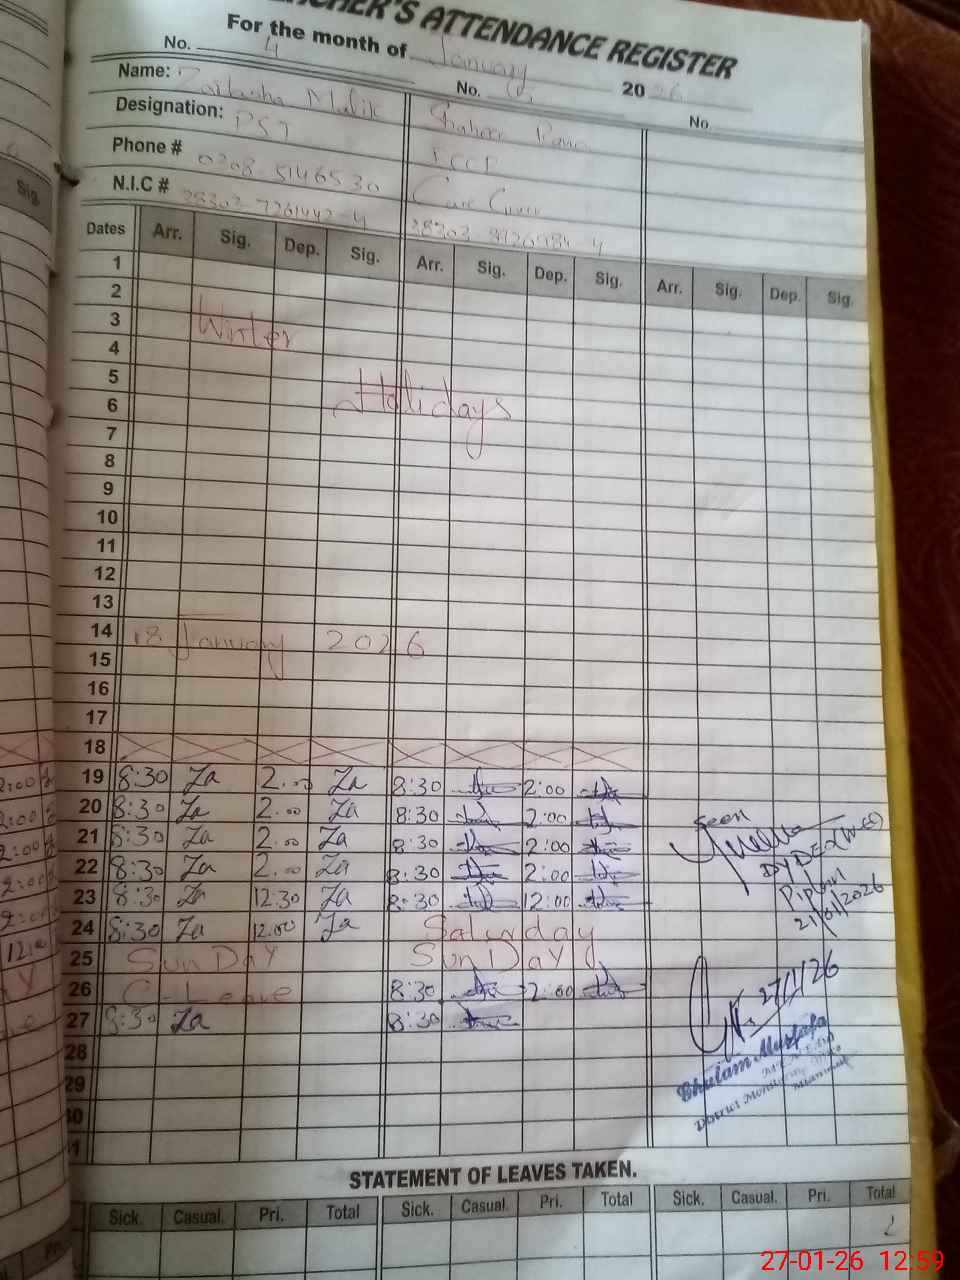 TEACHER'S ATTENDANCE REGISTER
For the month of January 2026
No. 4 No. No.
Name: Malik Shaheen
Designation: PST ECCE
Phone # 0308-5146530 Care Giver
N.I.C # 38303-7261442-4
Dates Arr. Sig. Dep. Sig. Arr. Sig. Dep. Sig. Arr. Sig. Dep. Sig.
1
2
3 Winter
4
5
6 Holidays
7
8
9
10
11
12
13
14 18 January 2026
15
16
17
18
19 8:30 Za 2.00 Za 8:30 2:00
20 8:30 Za 2.00 Za 8:30 2:00
21 8:30 Za 2.00 Za 8:30 2:00
22 8:30 Za 2.00 Za 8:30 2:00
23 8:30 Za 12.30 Za 8:30 12:00
24 8:30 Za 12.00 Za Saturday
25 SunDay SunDay
26 C-Leave 8:30 2:00
27 8:30 Za 8:30
28
29
30
31
Seen
DY DEO (W-EE)
Piplan
21/01/2026
27/1/26
Ghulam Mustafa
District Monitoring Office
Mianwali
STATEMENT OF LEAVES TAKEN.
Sick. Casual. Pri. Total Sick. Casual. Pri. Total Sick. Casual. Pri. Total
27-01-26 12:59